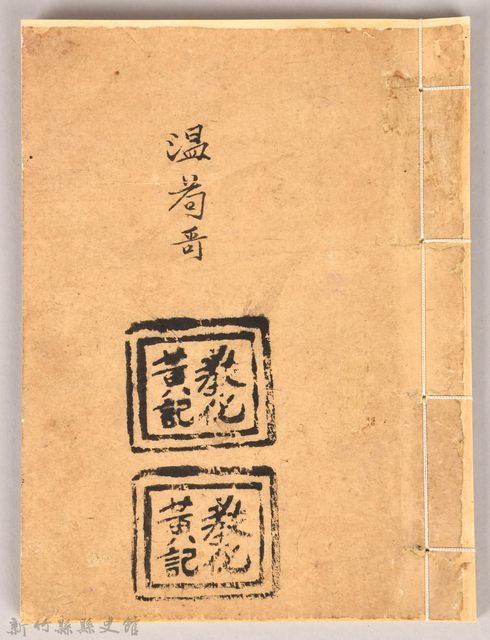 温苟哥
教化
黃記
教化
黃記
新竹縣縣史館